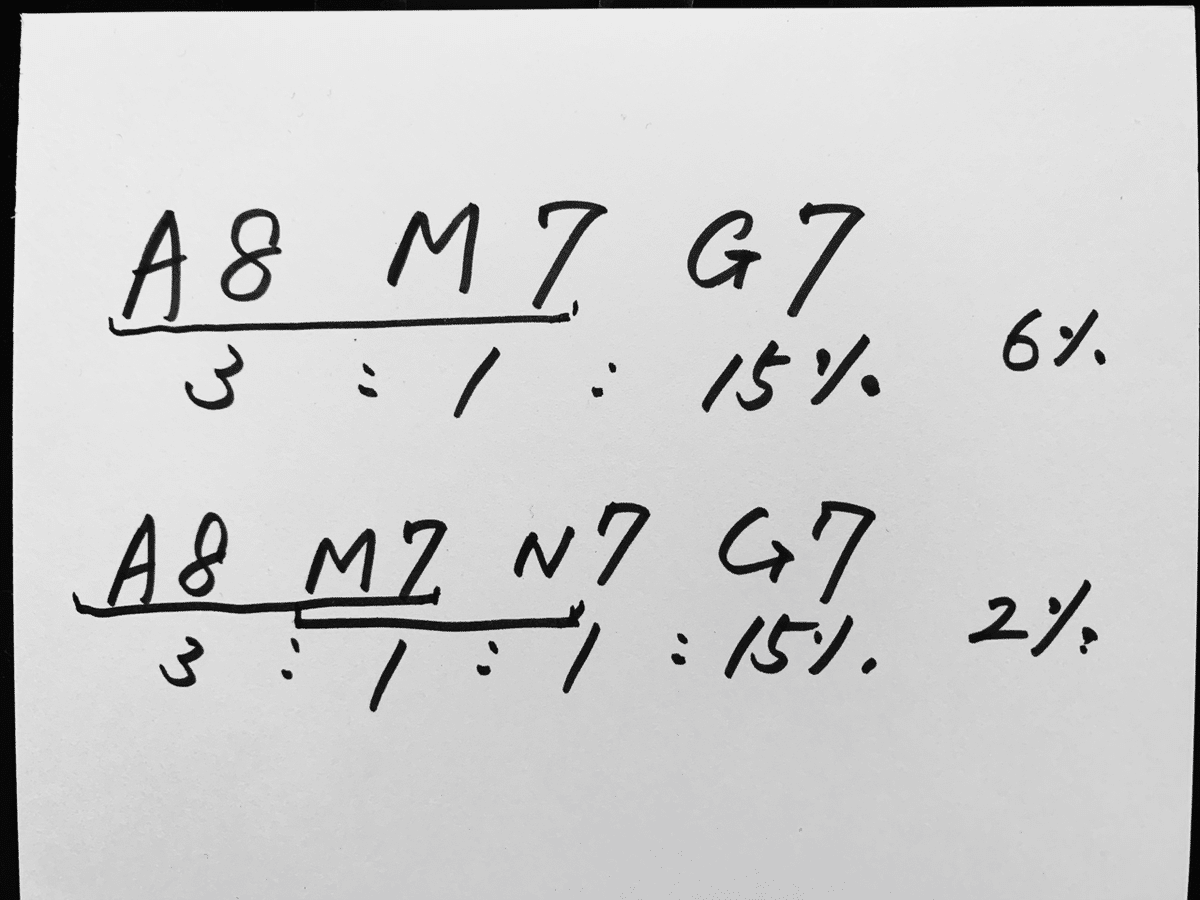 A8 M7 G7
3 : 1 : 15% 6%
A8 M7 N7 G7
3 : 1 : 1 : 15% 2%